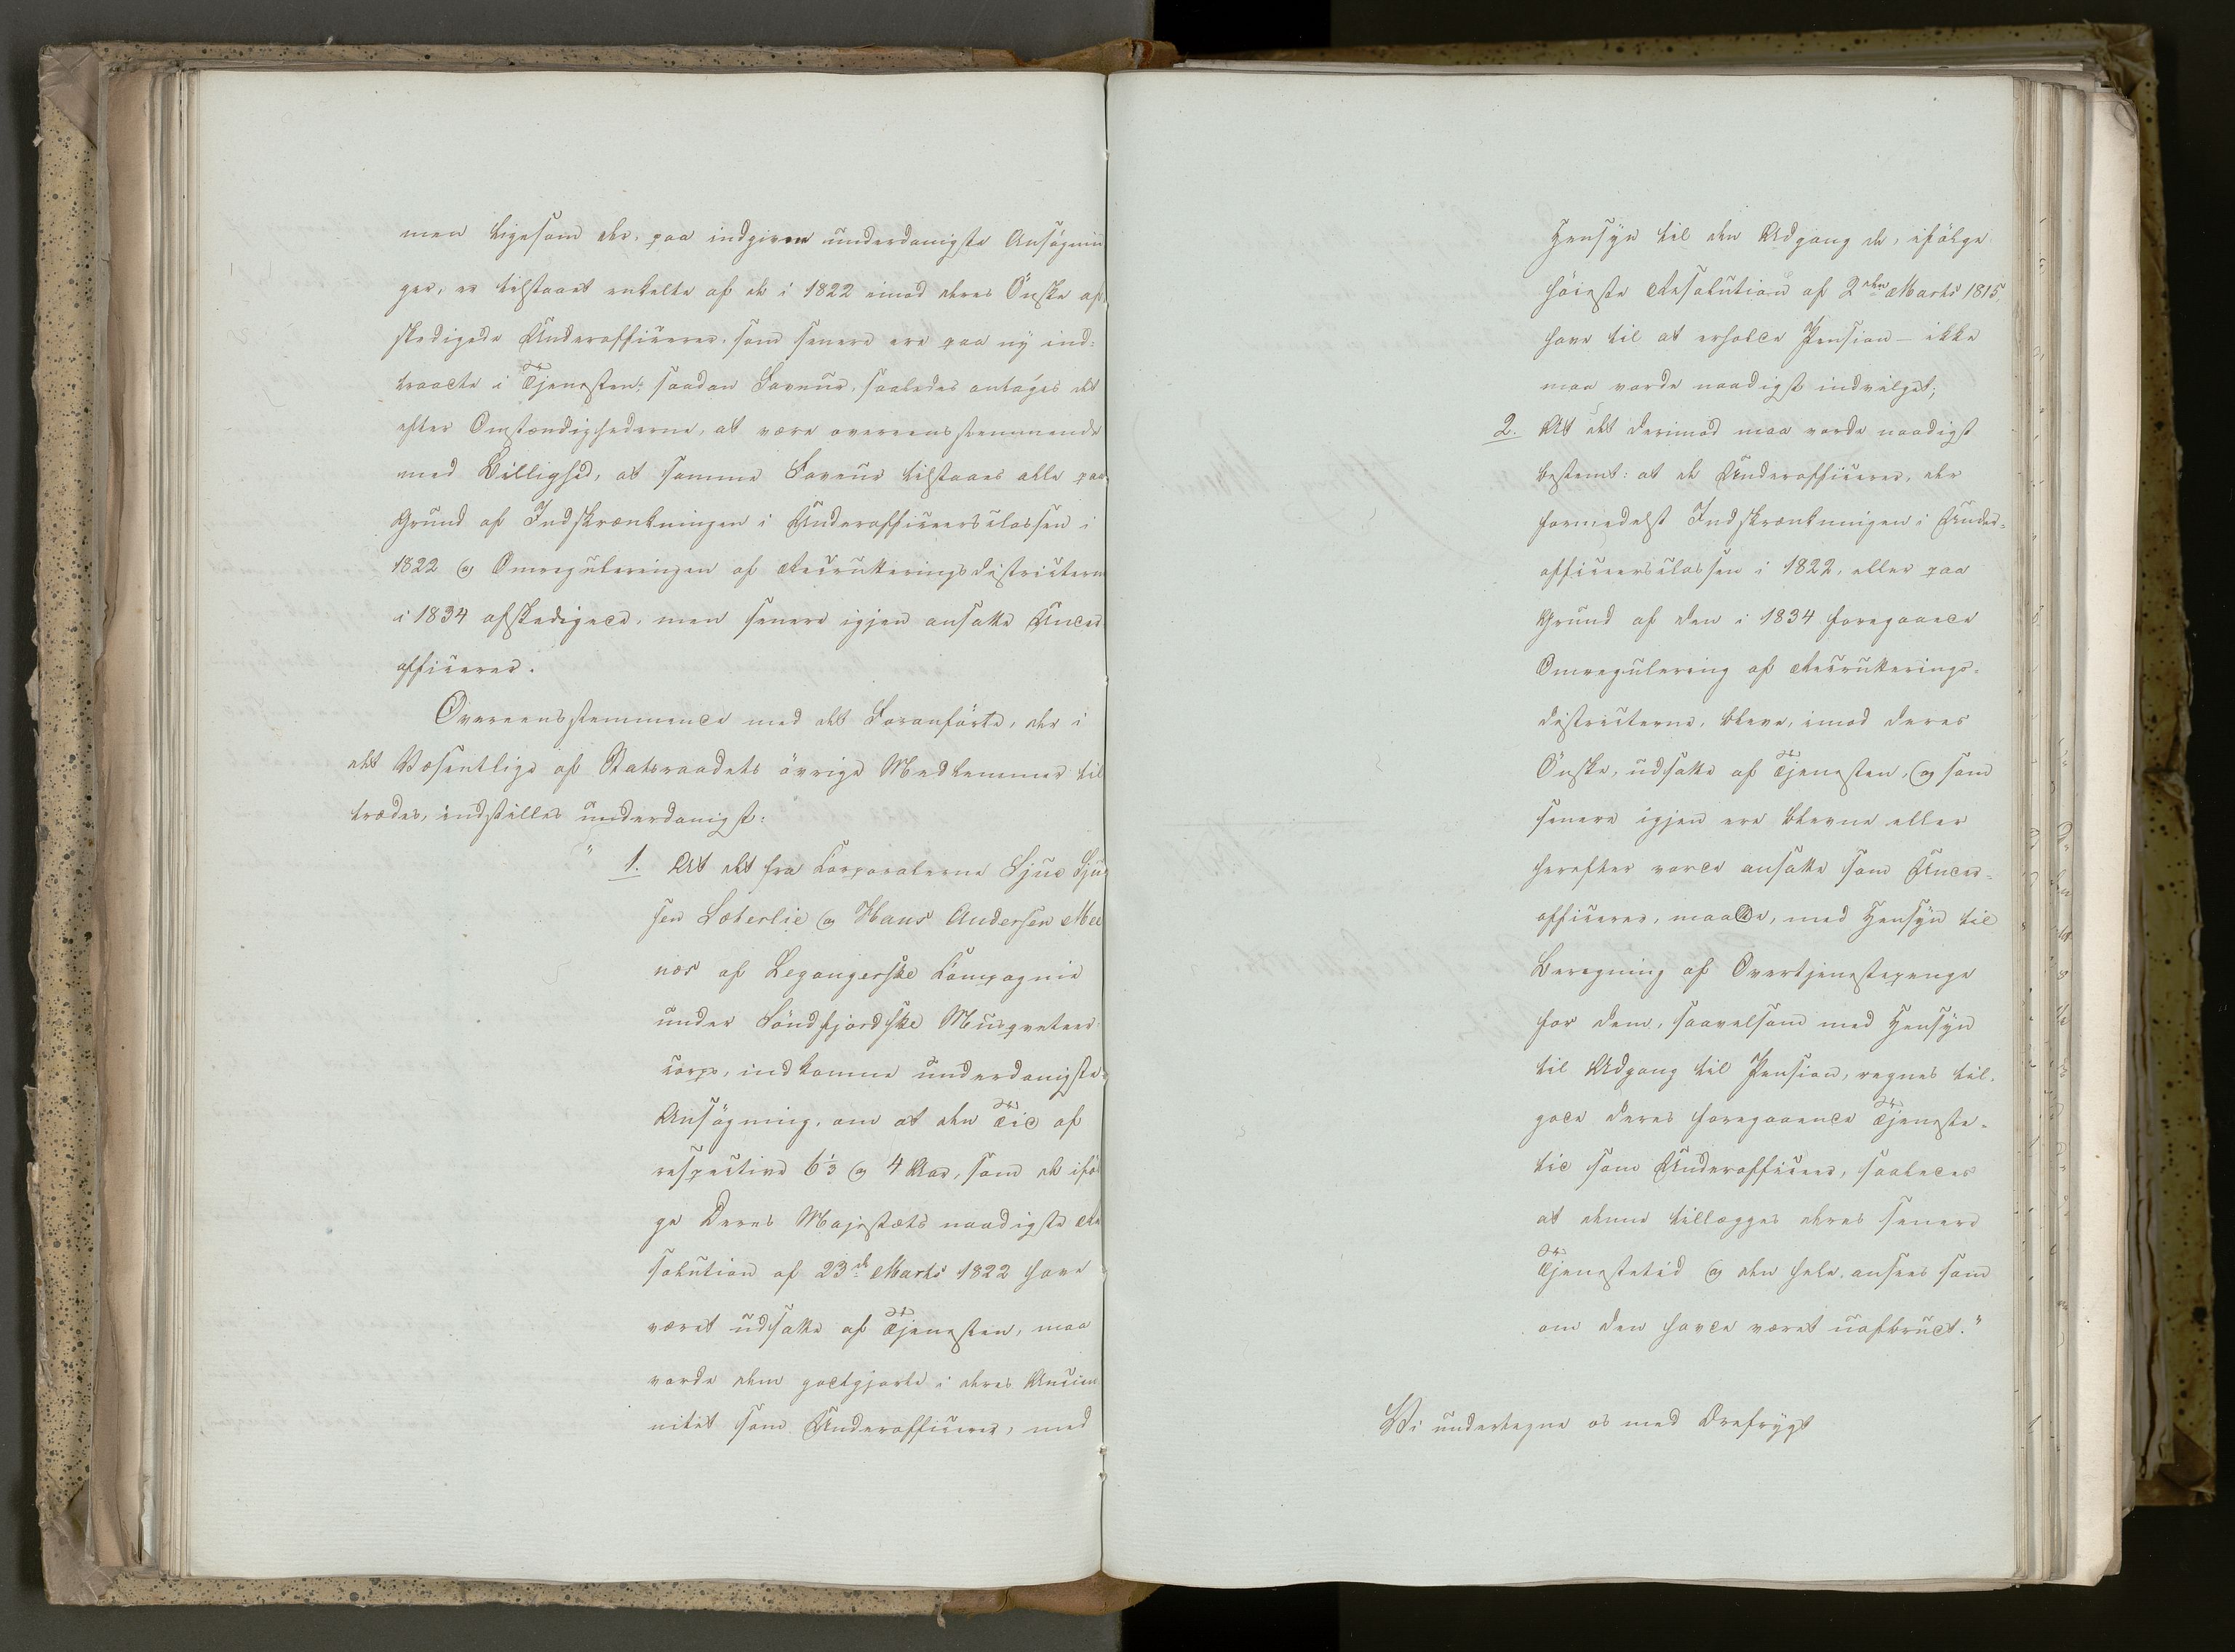 men ligesom der, paa indgiven underdanigste Ansøgnin
ger, er tilstaaet enkelte af de i 1822 imod deres Ønske af
skedigede Underofficerer, som senere ere paa ny ind-
traadte i Tjenesten, saadan Faveur, saaledes antages det
efter Omstændighederne, at være overeensstemmende
med Billighed, at samme Faveur tilstaaes alle paa
Grund af Indskrænkningen i Underofficeersclassen i
1822 og Omreguleringen af Recrutteringsdistricterne
i 1834 afskedigede, men senere igjen ansatte Under
officerer.
Overeensstemmende med det Foranførte, der i
det Væsentlige af Statsraadets øvrige Medlemmer til
trædes, indstilles underdanigst:
" 1. At det fra Corporalerne Sjur Sjur
sen Sæterlie og Hans Andersen
næs af Legangerske Compagnie
under Söndfjordske Musqveteer
corps, indkomne underdanigste
Ansøgning, om at den Tid af
respective 6⅓ og 4 Aar, som de iføl
ge Deres Majestæts naadigste Re
solution af 23de Marts 1822 have
været udsatte af Tjenesten, maa
vorde dem godtgjorte i deres Ancien
nitet som Underofficerer, med
Hensyn til den Adgang de, ifølge
höieste Resolution af 2den Marts 1815,
have til at erholde Pension – ikke
maa vorde naadigst indvilget;
2. At det derimod maa vorde naadigst
bestemt: at de Underofficerer, der
formedelst Indskrænkningen i Under-
officeersclassen i 1822, eller paa
Grund af den i 1834 foregaaede
Omregulering af Recrutterings-
districterne, bleve, imod deres
Ønske, udsatte af Tjenesten, og som
senere igjen ere blevne eller
herefter vorde ansatte som Under-
officerer, maae, med Hensyn til
Beregning af Overtjenestepenge
for dem, saavelsom med Hensyn
til Adgang til Pension, regnes til-
gode deres foregaaende Tjeneste-
tid som Underofficeer, saaledes
at denne tillægges deres senere
Tjenestetid og den hele ansees som
om den havde været uafbrudt."
Vi undertegne os med Ærefrygt